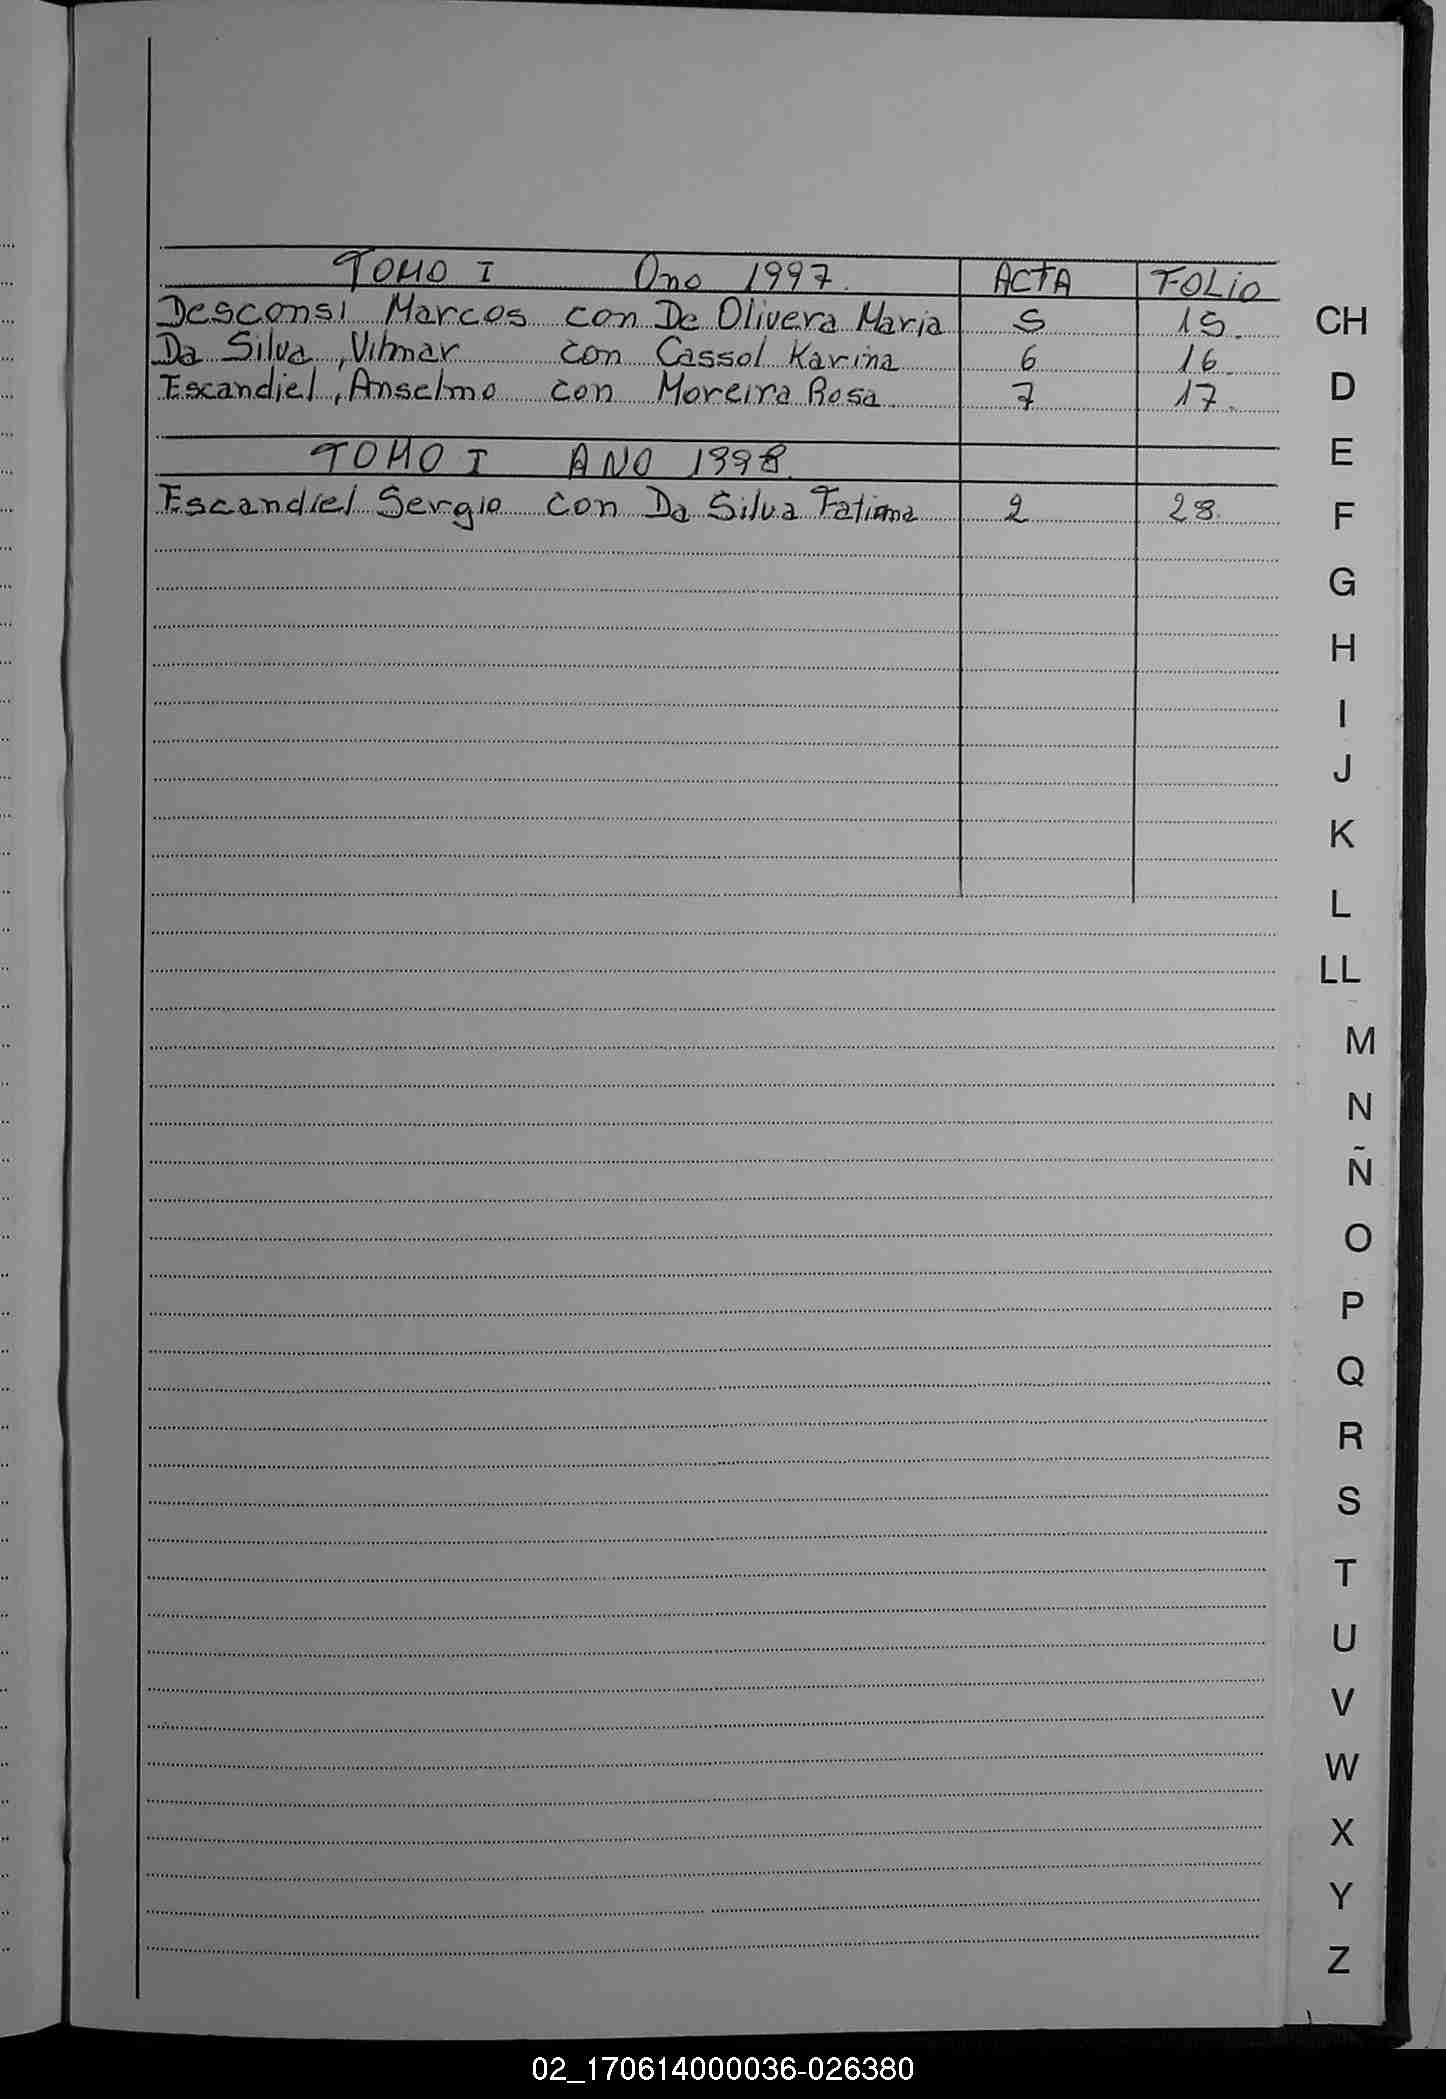 TOMO I Ano 1997. ACTA FOLIO
Desconsi Marcos con De Olivera Maria 5 15.
Da Silva, Vilmar con Cassol Karina 6 16.
Escandiel, Anselmo con Moreira Rosa 7 17.
TOMO I ANO 1998.
Escandiel Sergio con Da Silva Fatima 2 28.
CH
D
E
F
G
H
I
J
K
L
LL
M
N
Ñ
O
P
Q
R
S
T
U
V
W
X
Y
Z
02_170614000036-026380